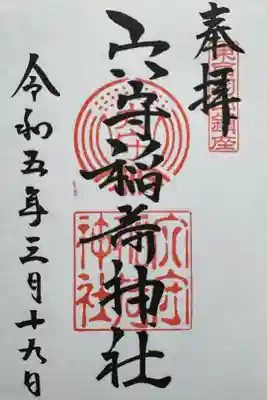 奉拝
穴守稲荷神社
令和五年三月十九日
穴守
稲荷
神社